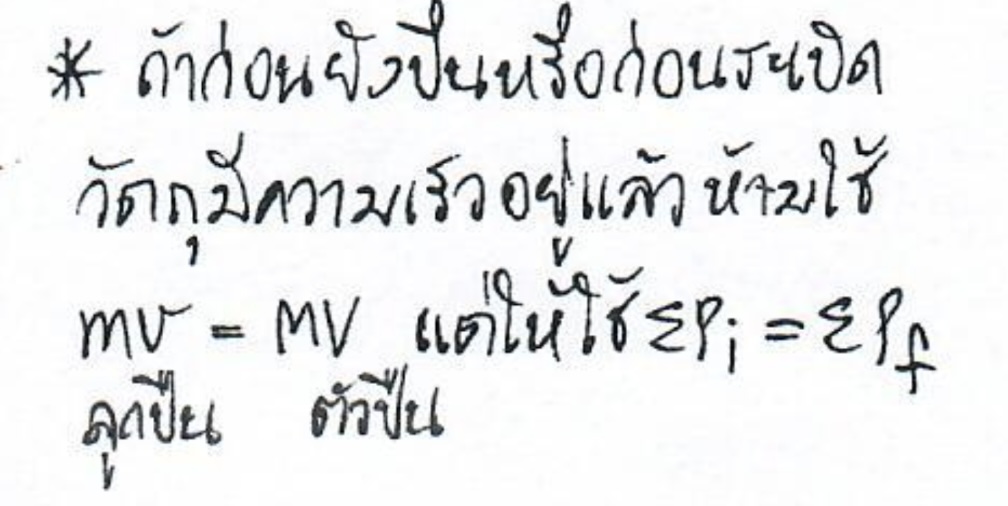 * ถ้าก่อนยิงปืนหรือก่อนระเบิด
วัตถุมีความเร็วอยู่แล้ว ห้ามใช้
mv = MV แต่ให้ใช้ ΣPi = ΣPf
ลูกปืน ตัวปืน